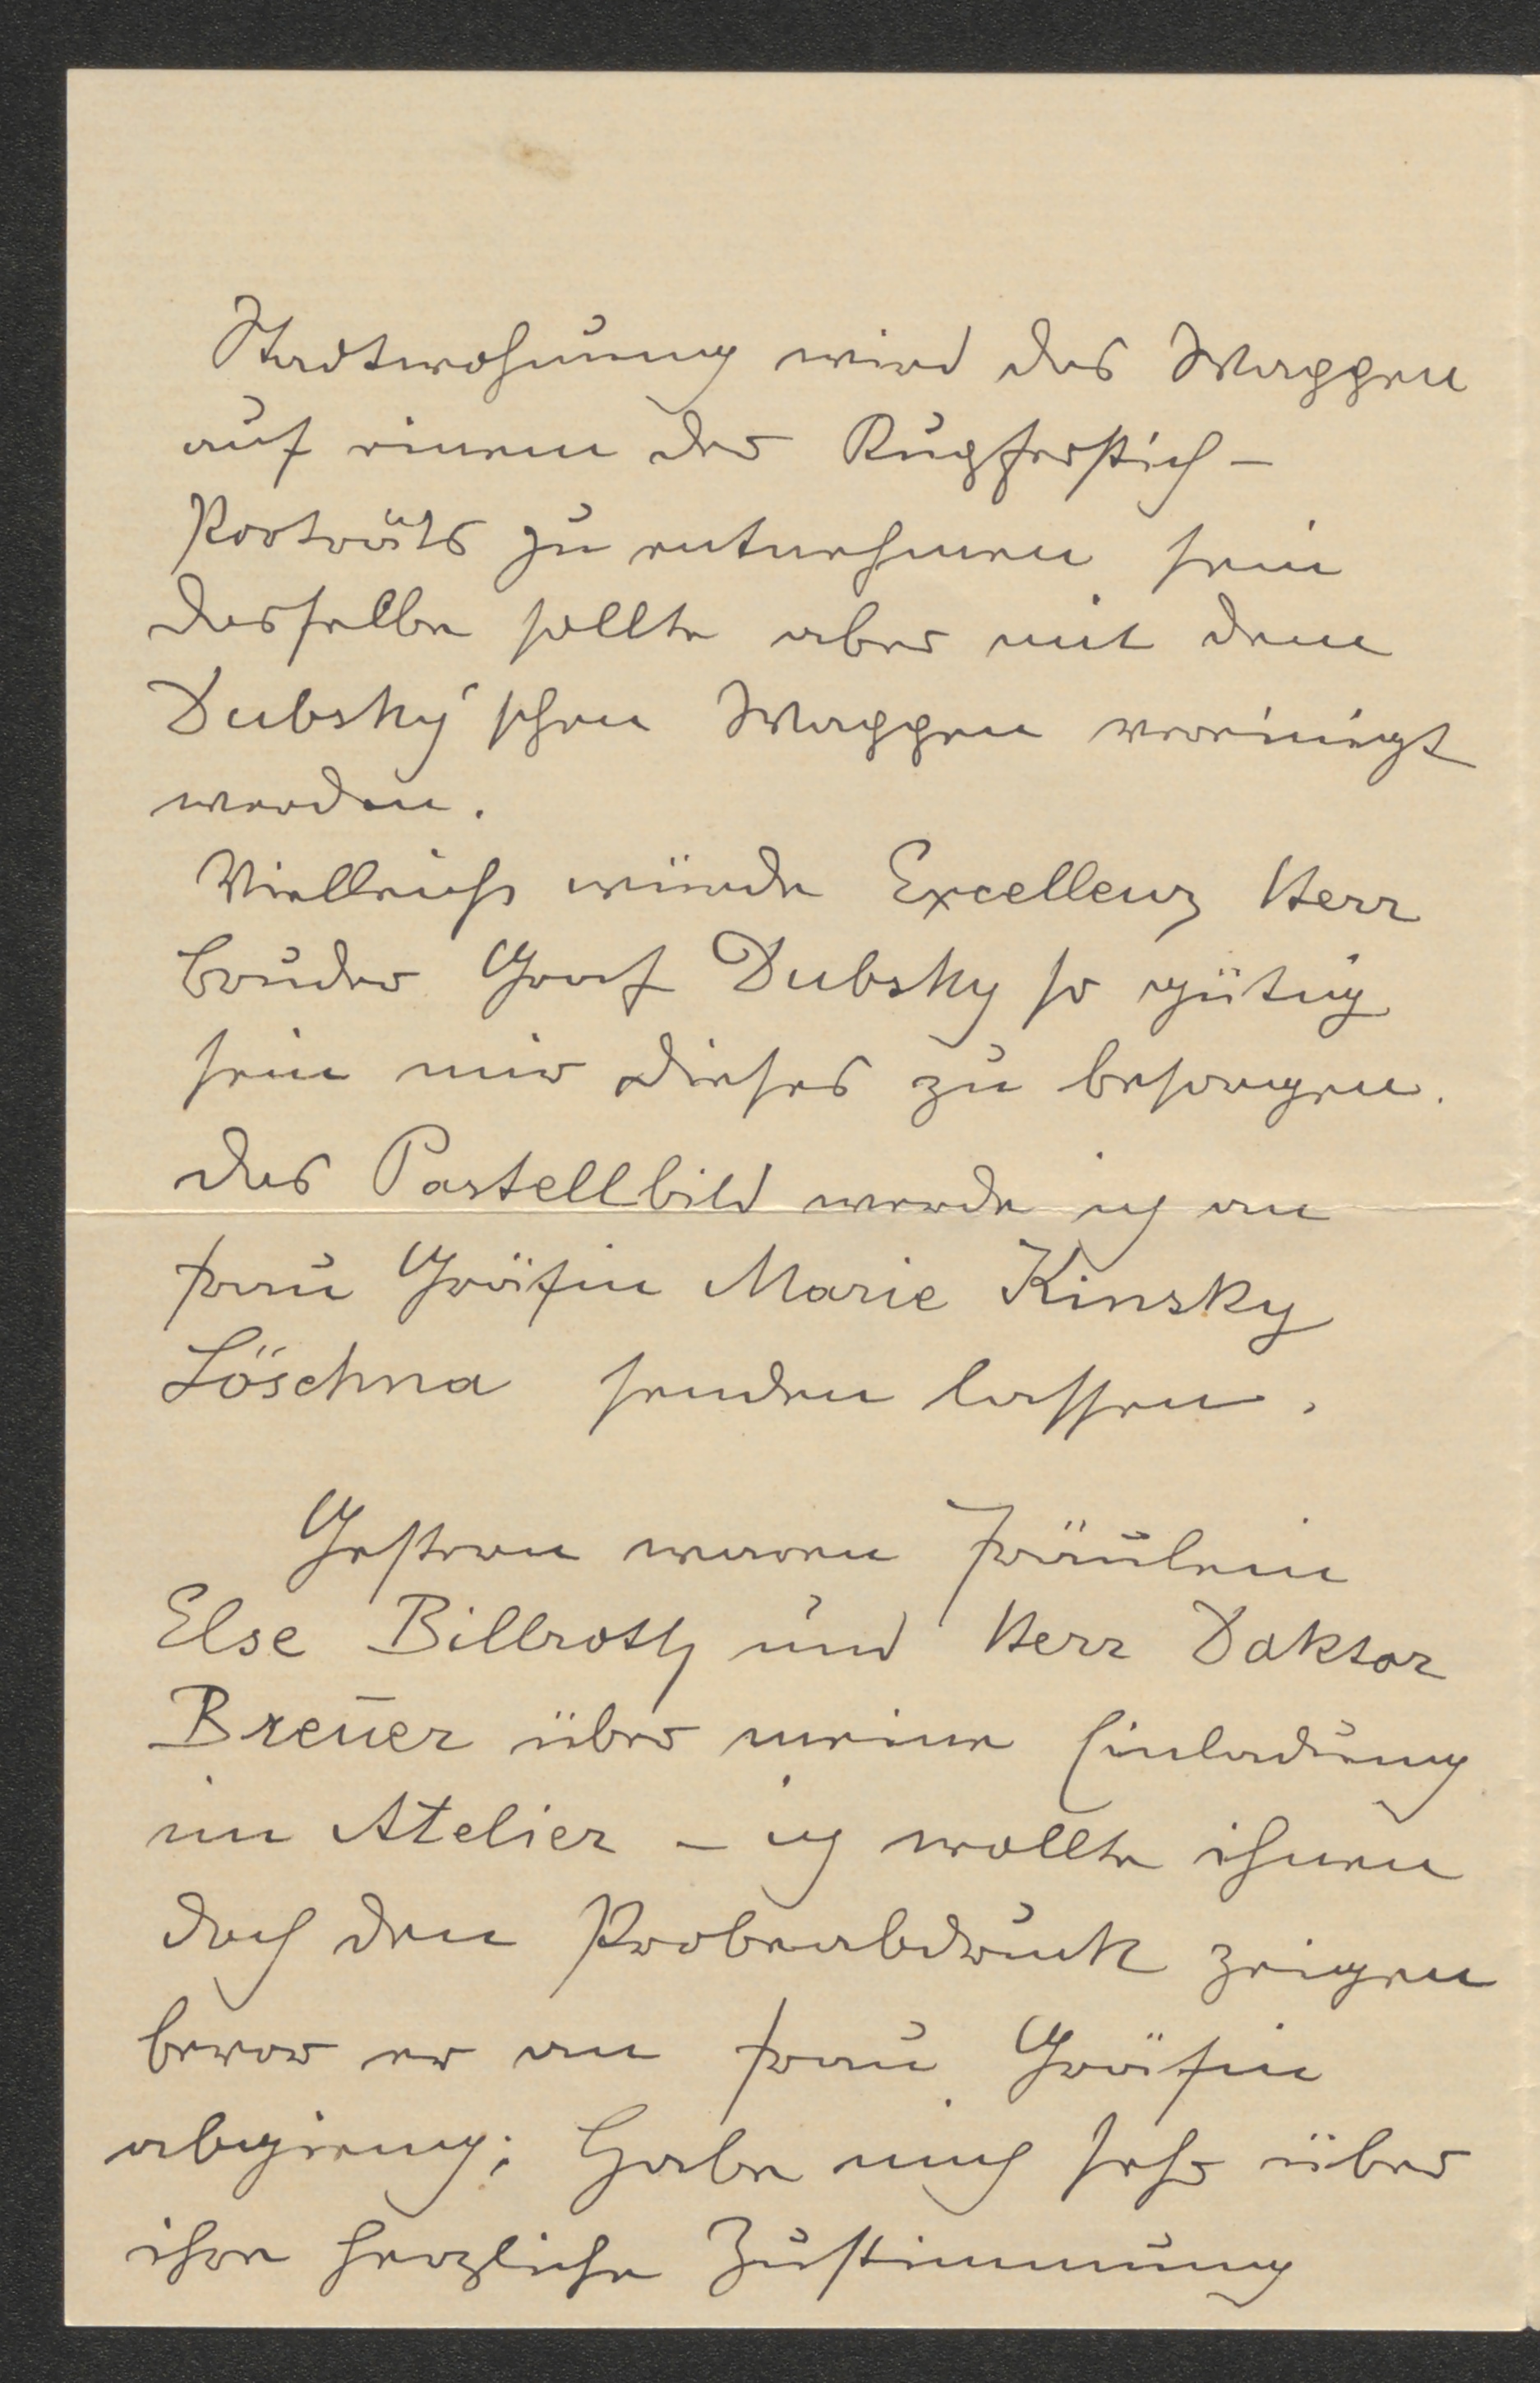 Stadtwohnung wird das Wappen
auf einem der Kupferstich-
Porträts zu entnehmen sein
dasselbe sollte aber mit dem
Dubsky'schen Wappen vereinigt
werden.
Vielleicht würde Excellenz Herr
Bruder Graf Dubsky so gütig
sein mir dieses zu besorgen.
Das Pastellbild werde ich an
Frau Gräfin Marie Kinsky
Löschna senden lassen.
Gestern waren Fräulein
Else Billroth und Herr Doktor
Breuer über meine Einladung
im Atelier – ich wollte ihnen
doch den Probeabdruck zeigen
bevor er an Frau Gräfin
abgieng; Habe mich sehr über
ihre herzliche Zustimmung